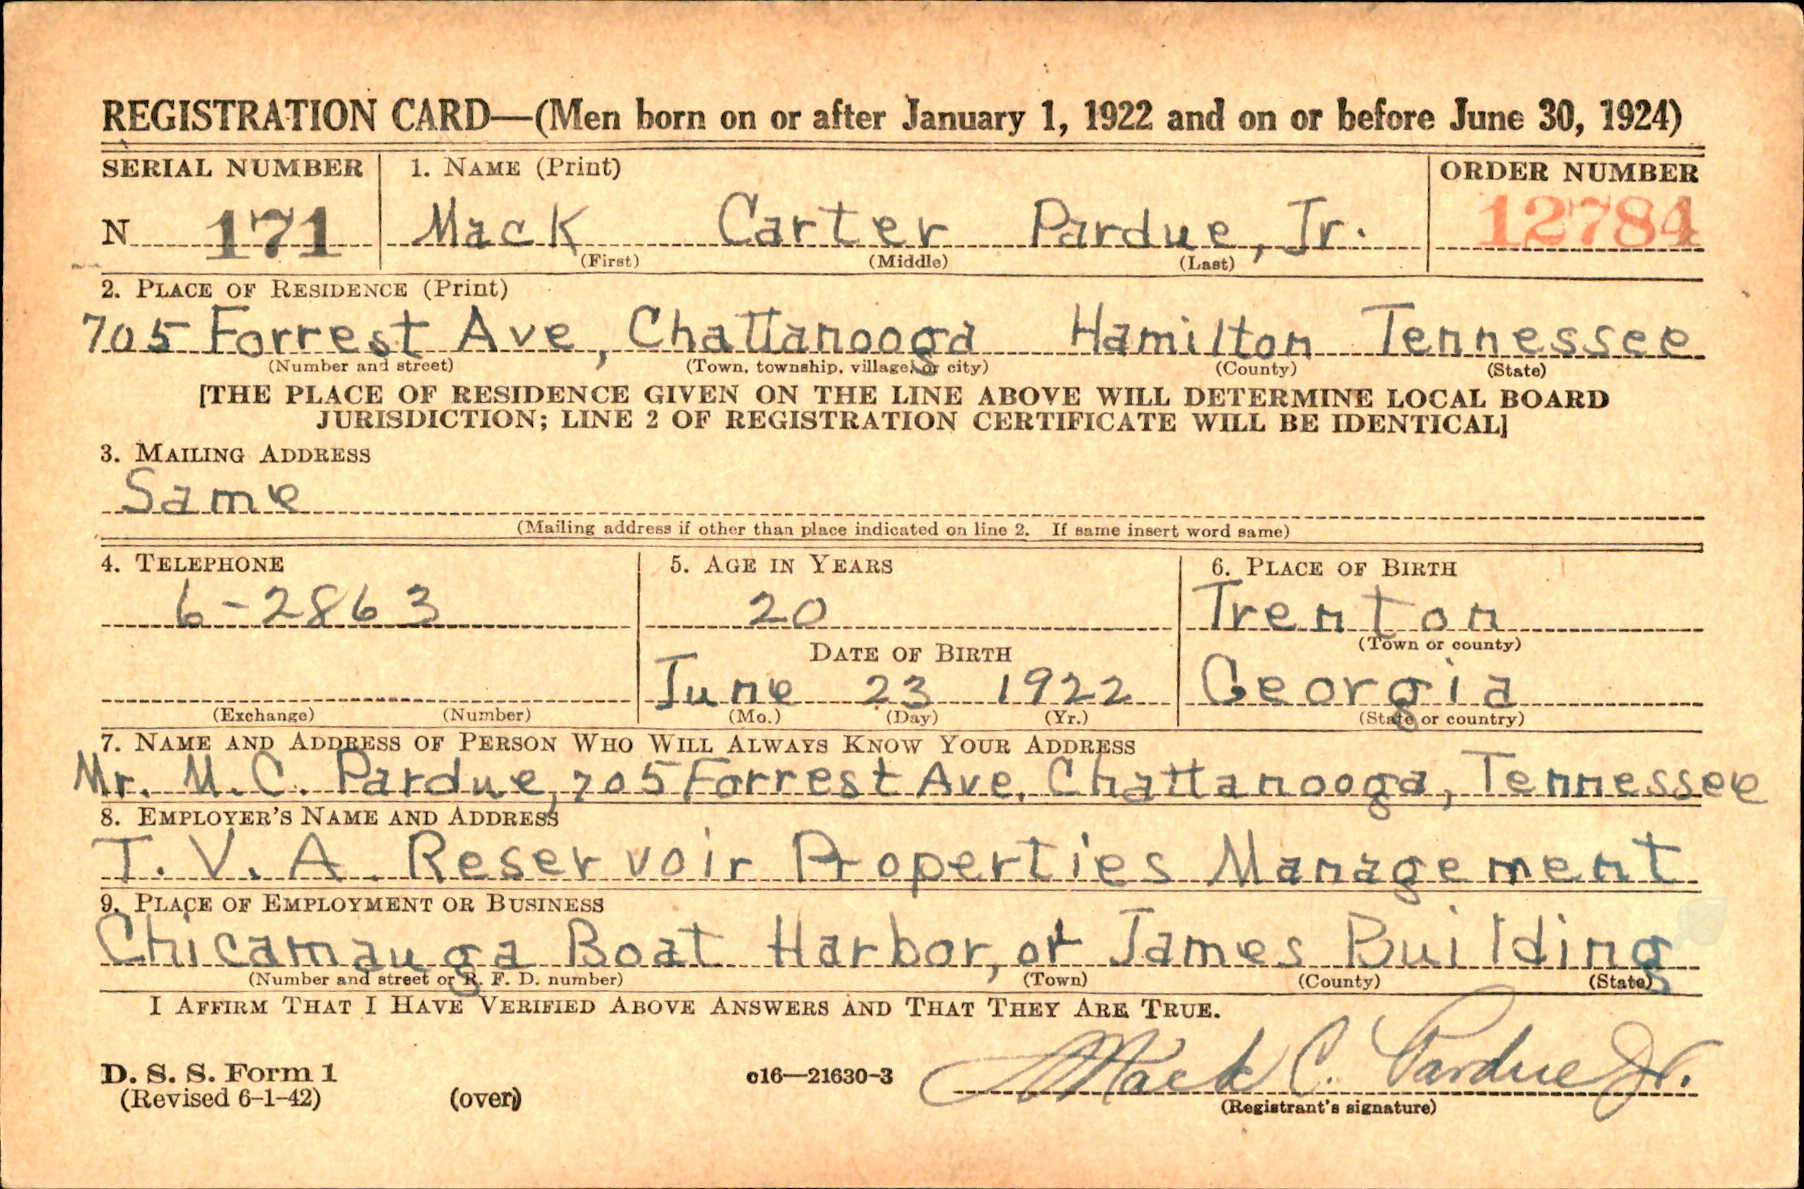 REGISTRATION CARD—(Men born on or after January 1, 1922 and on or before June 30, 1924)
SERIAL NUMBER 1. NAME (Print) ORDER NUMBER
N 171 Mack Carter Pardue, Jr. 12784
(First) (Middle) (Last)
2. PLACE OF RESIDENCE (Print)
705 Forrest Ave, Chattanooga Hamilton Tennessee
(Number and street) (Town, township, village, or city) (County) (State)
[THE PLACE OF RESIDENCE GIVEN ON THE LINE ABOVE WILL DETERMINE LOCAL BOARD
JURISDICTION; LINE 2 OF REGISTRATION CERTIFICATE WILL BE IDENTICAL]
3. MAILING ADDRESS
Same
(Mailing address if other than place indicated on line 2. If same insert word same)
4. TELEPHONE 5. AGE IN YEARS 6. PLACE OF BIRTH
6-2863 20 Trenton
DATE OF BIRTH (Town or county)
June 23 1922 Georgia
(Exchange) (Number) (Mo.) (Day) (Yr.) (State or country)
7. NAME AND ADDRESS OF PERSON WHO WILL ALWAYS KNOW YOUR ADDRESS
Mr. M.C. Pardue, 705 Forrest Ave. Chattanooga, Tennessee
8. EMPLOYER'S NAME AND ADDRESS
T.V.A. Reservoir Properties Management
9. PLACE OF EMPLOYMENT OR BUSINESS
Chicamauga Boat Harbor, or James Building
(Number and street or R. F. D. number) (Town) (County) (State)
I AFFIRM THAT I HAVE VERIFIED ABOVE ANSWERS AND THAT THEY ARE TRUE.
D. S. S. Form 1 c16—21630-3 Mack C. Pardue Jr.
(Revised 6-1-42) (over) (Registrant's signature)